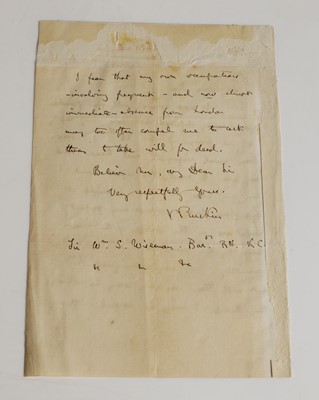 I fear that my own occupations
- involving frequent - and now almost
immediate - absence from London
may too often compel me to ask
them to take will for deed.
Believe me, my Dear Sir
Very respectfully Yours.
J Ruskin
Sir Wm. S. Wiseman. Bart. R.N. K.C.